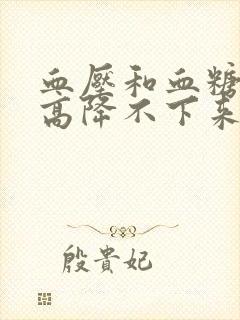 血壓和血糖
高降不下来
殷貴妃